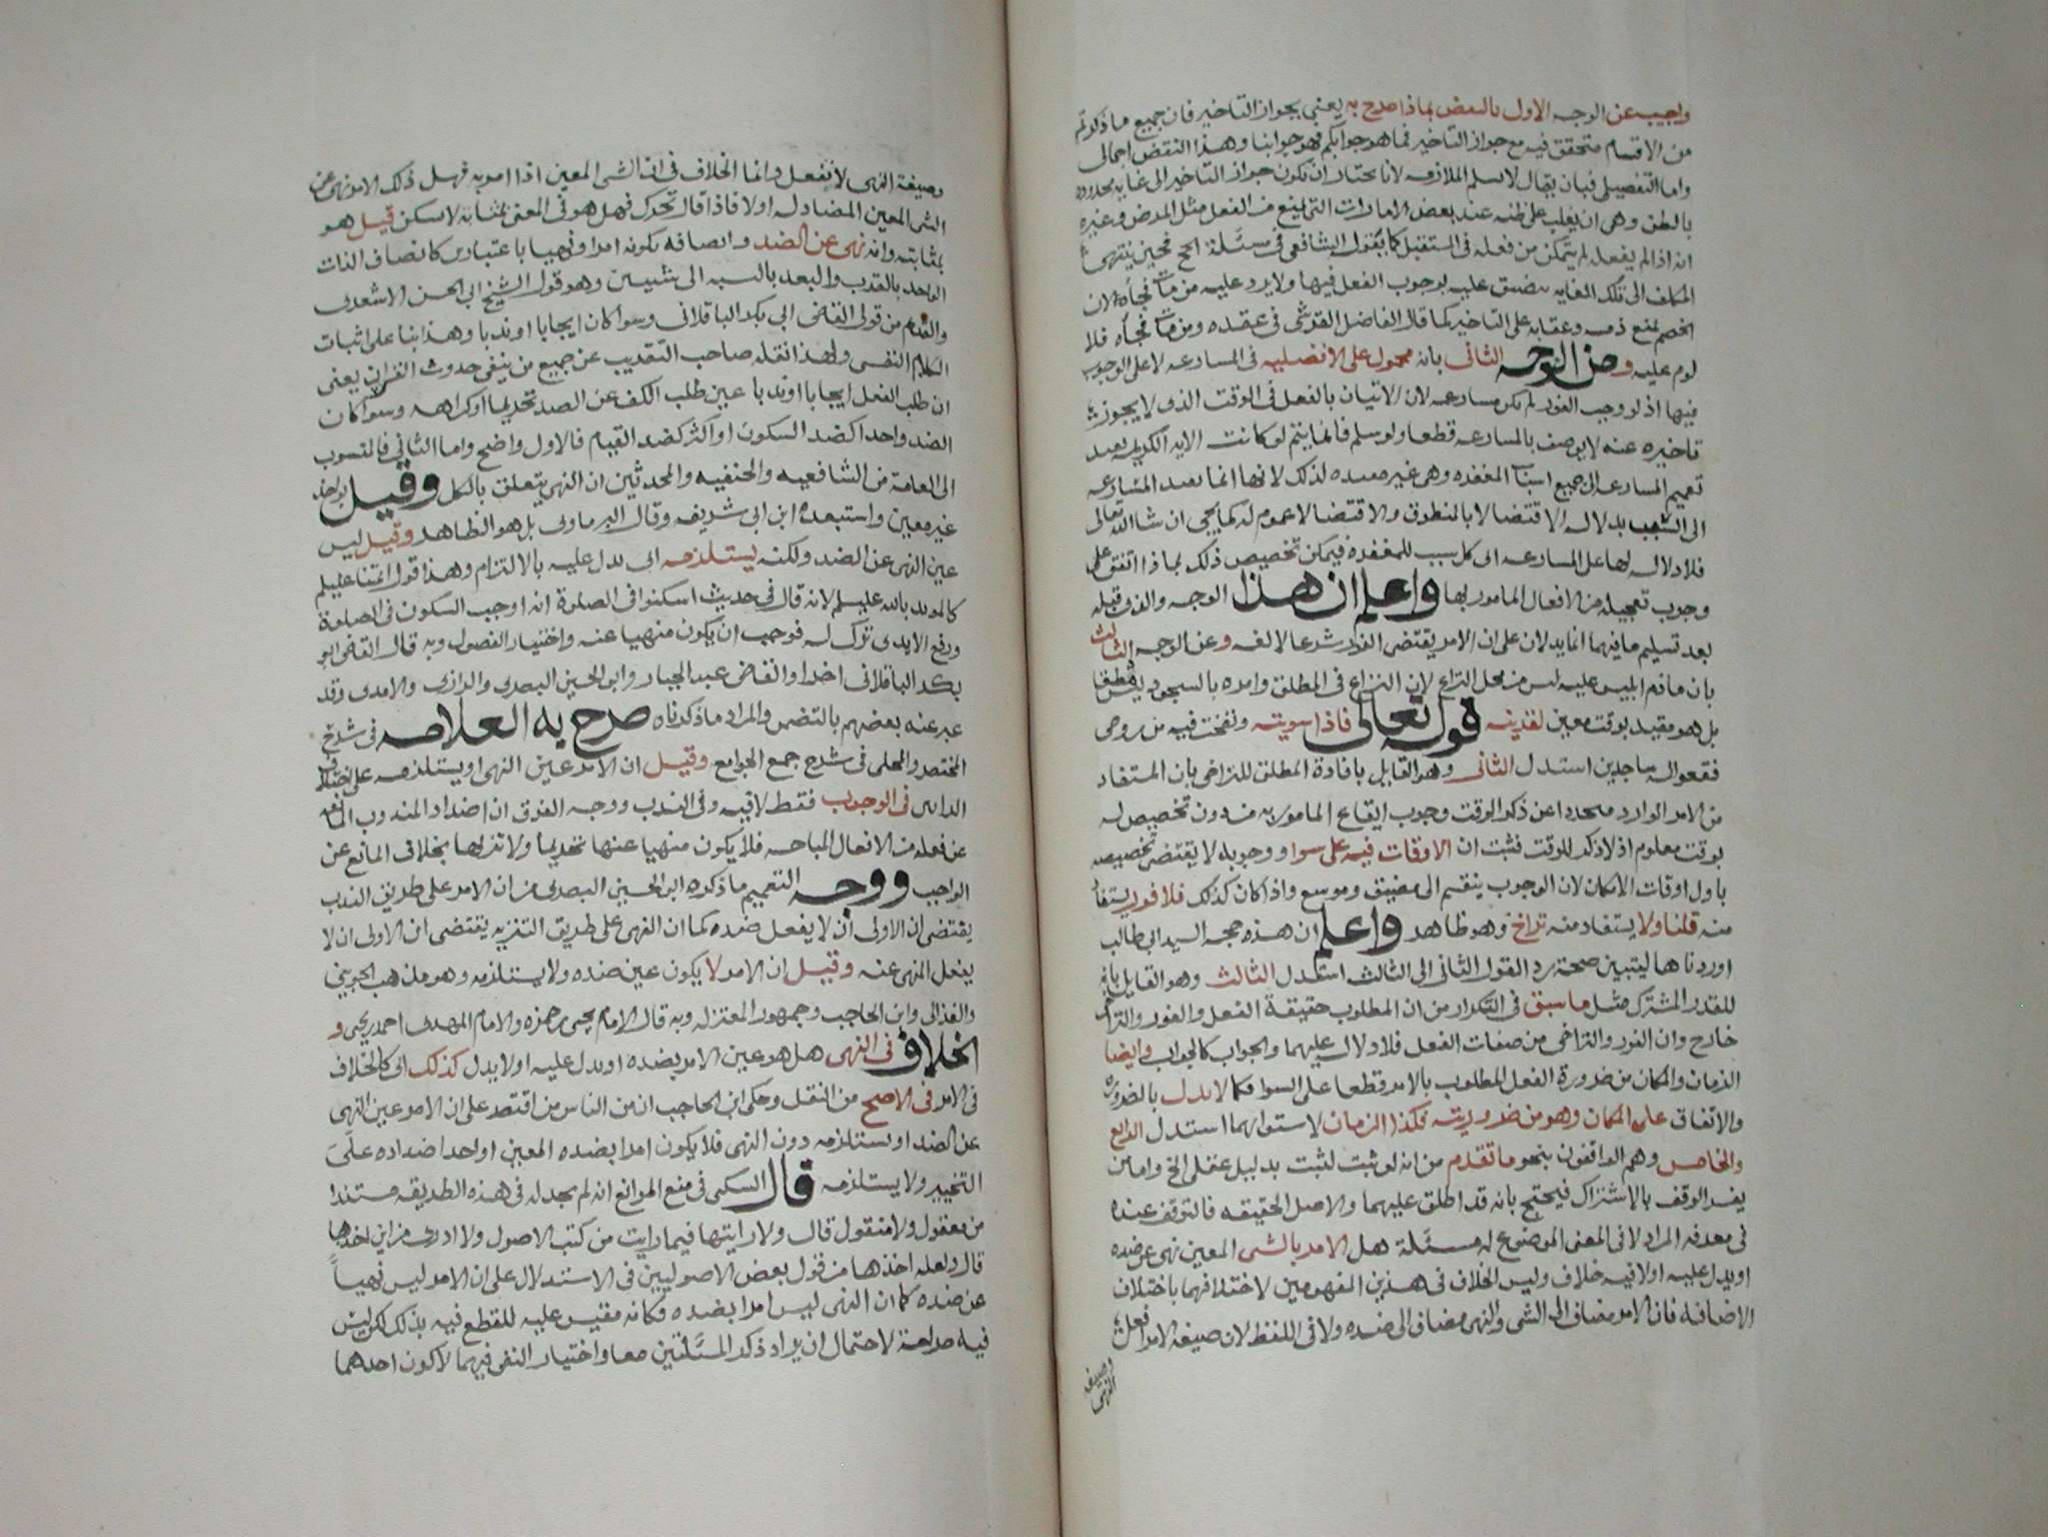 واجيب عن الوجه الاول بالنقض بماذا صرح به يعني بجواز التاخير فان جميع ما ذكرتم
من الاقسام متحقق فيه مع جواز التاخير فما هو جوابكم فهو جوابنا وهذا النقض اجمالى
واما التفصيلى فبان يقال لا نسلم الملازمه لانا نختار ان يكون جواز التاخير الى غايه محدوده
بالظن وهى ان يغلب على ظنه عند بعض الامارات التى تمنع من الفعل مثل المرض وغيره
انه اذا لم يفعله لم يتمكن من فعله فى المستقبل كما يقول الشافعى فى مسئلة الحج فحين ينتهى
المكلف الى تلك الغايه يضيق عليه بوجوب الفعل فيها ولا يرد عليه من مات فجأة لان
الخصم يمنع ذمه وعقابه على التاخير كما قال الفاضل القرشى فى عقده ومن مات فجأه فلا
لوم عليه وعن الوجه الثانى بانه محمول على الافضليه فى المسارعه لا على الوجوب
فيها اذ لو وجب الفور لم يكن مسارعه لان الاتيان بالفعل فى الوقت الذى لا يجوز
تاخيره عنه لا يوصف بالمسارعه قطعا ولو سلم فانما يتم لو كانت الايه الكريمه تفيد
تعميم المسارعه الى جميع اسباب المغفره وهى غير مفيده لذلك لانها انما تفيد المسارعه
الى السبب بدلاله الاقتضا لا بالمنطوق والاقتضا لا عموم له كما يجى ان شا الله تعالى
فلا دلاله لها على المسارعه الى كل سبب للمغفره فيمكن تخصيص ذلك بماذا اتفق على
وجوب تعجيله من الافعال المامور بها واعلم ان هذا الوجه والذى قبله
بعد تسليم ما فيهما انما يدلان على ان الامر يقتضى الفور شرعا لا لغه وعن الوجه الثالث
بان ما ذم ابليس عليه ليس من محل النزاع لان النزاع فى المطلق وامره بالسجود ليس مطلقا
بل هو مقيد بوقت معين لقرينه قوله تعالى فاذا سويته ونفخت فيه من روحى
فقعوا له ساجدين استدل الثانى وهو القايل بافادة المطلق للتراخى بان المستفاد
من الامر الوارد متجردا عن ذكر الوقت وجوب ايقاع المامور به من دون تخصيص له
بوقت معلوم اذ لا ذكر للوقت فثبت ان الاوقات فيه على سوا ووجوبه لا يقتضى تخصيصه
باول اوقات الامكان لان الوجوب ينقسم الى مضيق وموسع واذا كان كذلك فلا فور يستفاد
منه قلنا ولا يستفاد منه تراخ وهو ظاهر واعلم ان هذه حجه السيد ابى طالب
اوردناها ليتبين صحة رد القول الثانى الى الثالث استدل الثالث وهو القايل بانه
للقدر المشترك مثل ما سبق فى التكرار من ان المطلوب حقيقة الفعل والفور والتراخى
خارج وان الفور والتراخى من صفات الفعل فلا دلاله عليهما والجواب كالجواب وايضا
الزمان والمكان من ضرورة الفعل المطلوب بالامر قطعا على السوا فكما لا يدل بالضروره
والاتفاق على المكان وهو من ضروريته فكذا الزمان لاستوائهما استدل الرابع
والخامس وهم الواقفون بنحو ما تقدم من انه لو ثبت لثبت بدليل عقلى الخ واما من
يفسر الوقف بالاشتراك فيحتج بانه قد اطلق عليهما والاصل الحقيقه فالتوقف عنده
فى معرفه المراد لا فى المعنى الموضوع له مسئلة هل الامر بالشى المعين نهى عن ضده
او يدل عليه او لا فيه خلاف وليس الخلاف فى هذين المفهومين لاختلافهما باختلاف
الاضافه فان الامر مضاف الى الشى والنهى مضاف الى ضده ولا فى اللفظ لان صيغه الامر افعل
وصيغه
النهى
وصيغة النهى لا تفعل وانما الخلاف فى ان الشى المعين اذا امر به فهل ذلك الامر نهى عن
الشى المعين المضاد له او لا فاذا قال تحرك فهل هو فى المعنى بمثابة لا تسكن قيل هو
بمثابته وانه نهى عن الضد واتصافه بكونه امرا ونهيا باعتبارين كاتصاف الذات
الواحد بالقرب والبعد بالنسبه الى شيئين وهو قول الشيخ ابى الحسن الاشعرى
والمقدم من قولى القاضى ابى بكر الباقلانى وسوا كان ايجابا او ندبا وهذا بنا على اثبات
الكلام النفسى ولهذا نقله صاحب التقريب عن جميع من ينفى حدوث القران يعنى
ان طلب الفعل ايجابا او ندبا عين طلب الكف عن الضد تحريما او كراهه وسوا كان
الضد واحدا كضد السكون او اكثر كضد القيام فالاول واضح واما الثانى فالمنسوب
الى العامة من الشافعيه والحنفيه والمحدثين ان النهى يتعلق بالكل وقيل بواحد
غير معين واستبعده ابن ابى شريف وقال البرماوى بل هو الظاهر وقيل ليس
عين النهى عن الضد ولكنه يستلزمه اى يدل عليه بالالتزام وهذا قول ائمتنا عليلم
كالمويد بالله عليلم لانه قال فى حديث اسكنوا فى الصلوة انه اوجب السكون فى الصلوة
ورفع الايدى ترك له فوجب ان يكون منهيا عنه واختيار الفصول وبه قال القاضى ابو
بكر الباقلانى اخرا والقاضى عبد الجبار وابو الحسين البصرى والرازى والامدى وقد
عبر عنه بعضهم بالتضمن والمراد ما ذكرناه صرح به العلامه فى شرح
المختصر والمحلى فى شرح جمع الجوامع وقيل ان الامر عين النهى او يستلزمه على اختلاف
الراس فى الوجوب فقط لا فيه وفى الندب ووجه الفرق ان اضداد المندوب المانعه
عن فعله من الافعال المباحه فلا يكون منهيا عنها تحريما ولا تنزيها بخلاف المانع عن
الواجب ووجه التعميم ما ذكره ابو الحسين البصرى من ان الامر على طريق الندب
يقتضى ان الاولى ان لا يفعل ضده كما ان النهى على طريق التنزيه يقتضى ان الاولى ان لا
يفعل المنهى عنه وقيل ان الامر لا يكون عين ضده ولا يستلزمه وهو مذهب الجوينى
والغزالى وابن الحاجب وجمهور المعتزله وبه قال الامام يحيى بن حمزه والامام المهدى احمد بن يحيى و
الخلاف فى النهى هل هو عين الامر بضده او يدل عليه او لا يدل كذلك اى كالخلاف
فى الامر فى الاصح من النقل وحكى ابن الحاجب ان من الناس من اقتصر على ان الامر عين النهى
عن الضد او يستلزمه دون النهى فلا يكون امرا بضده المعين او احد اضداده على
التخيير ولا يستلزمه قال السبكى فى منع الموانع انه لم يجد له فى هذه الطريقه مستندا
من معقول ولا منقول قال ولا رايتها فيما رايت من كتب الاصول ولا ادرى من اين اخذها
قال ولعله اخذها من قول بعض الاصوليين فى الاستدلال على ان الامر ليس نهياً
عن ضده كما ان النهى ليس امرا بضده فكانه مقيس عليه للقطع فيه بذلك لكن ليس
فيه صراحة لاحتمال ان يراد ذكر المسئلتين معا واختيار النفى فيهما لا كون احدهما